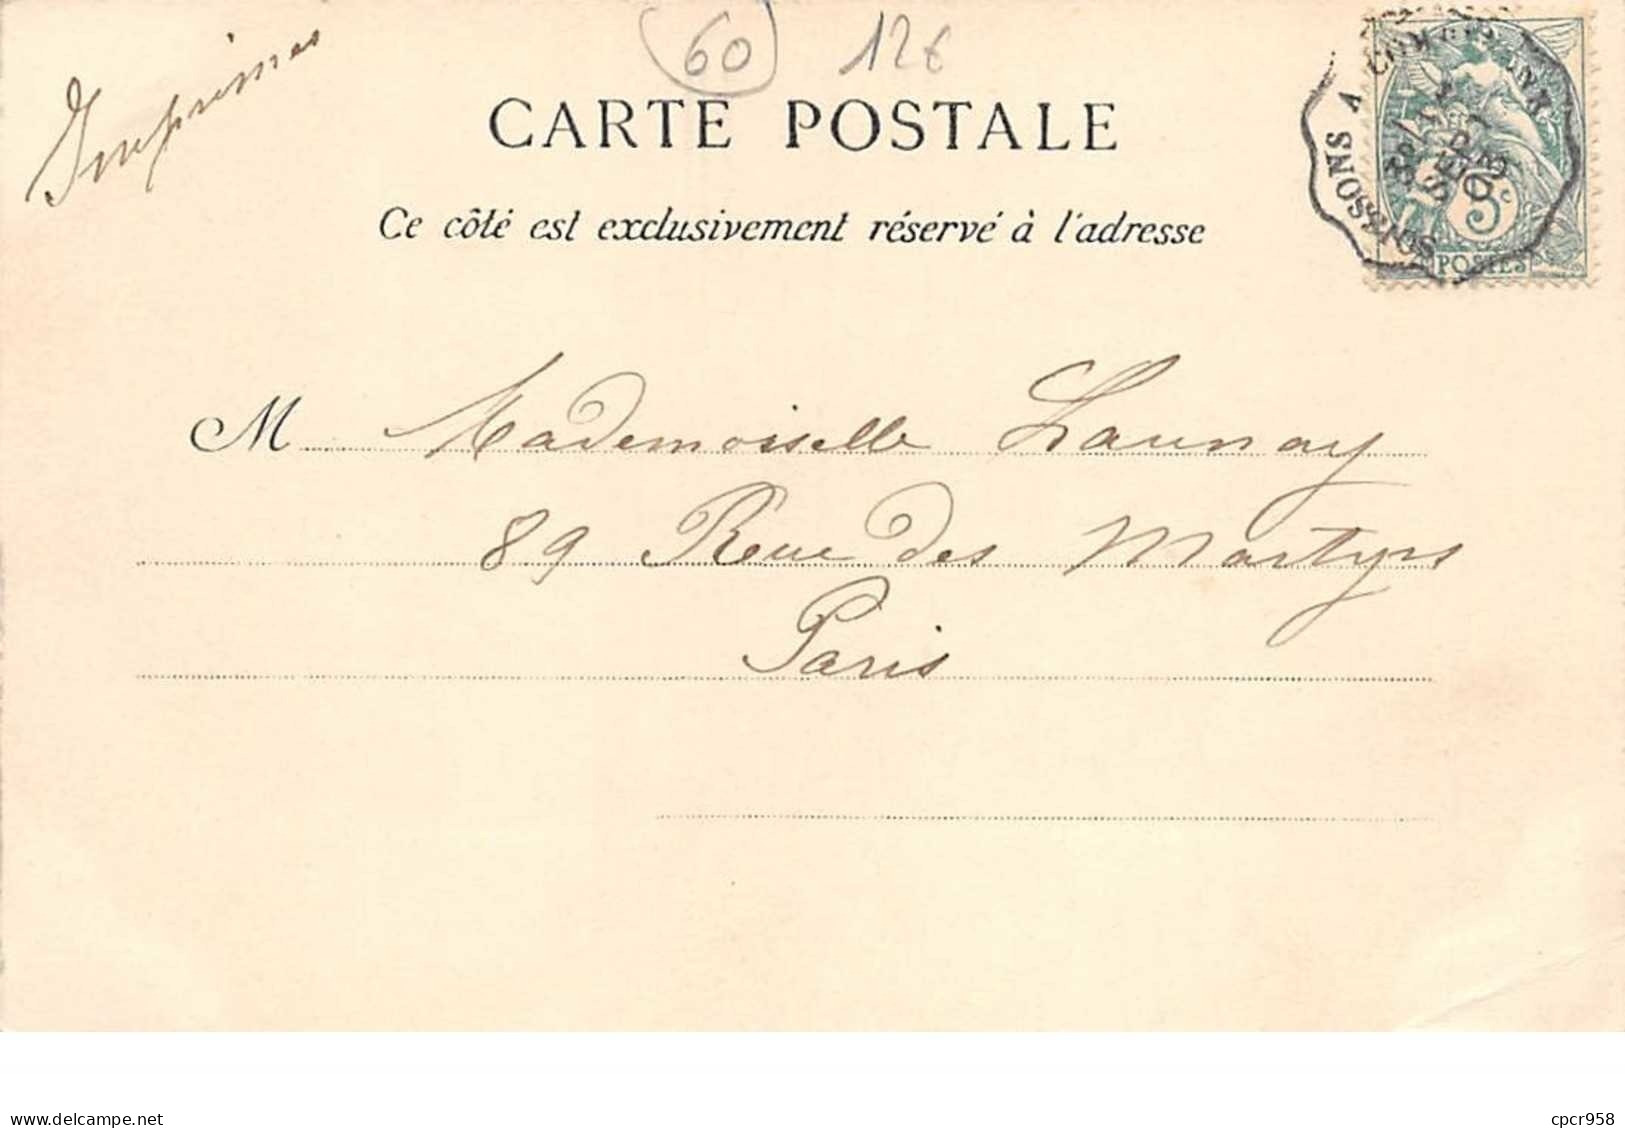 Imprimés
60 12€
CARTE POSTALE
Ce côté est exclusivement réservé à l'adresse
SOISSONS A
5c
POSTES
M Mademoiselle Launay
89 Rue des Martyrs
Paris
www.delcampe.net
cpcr958